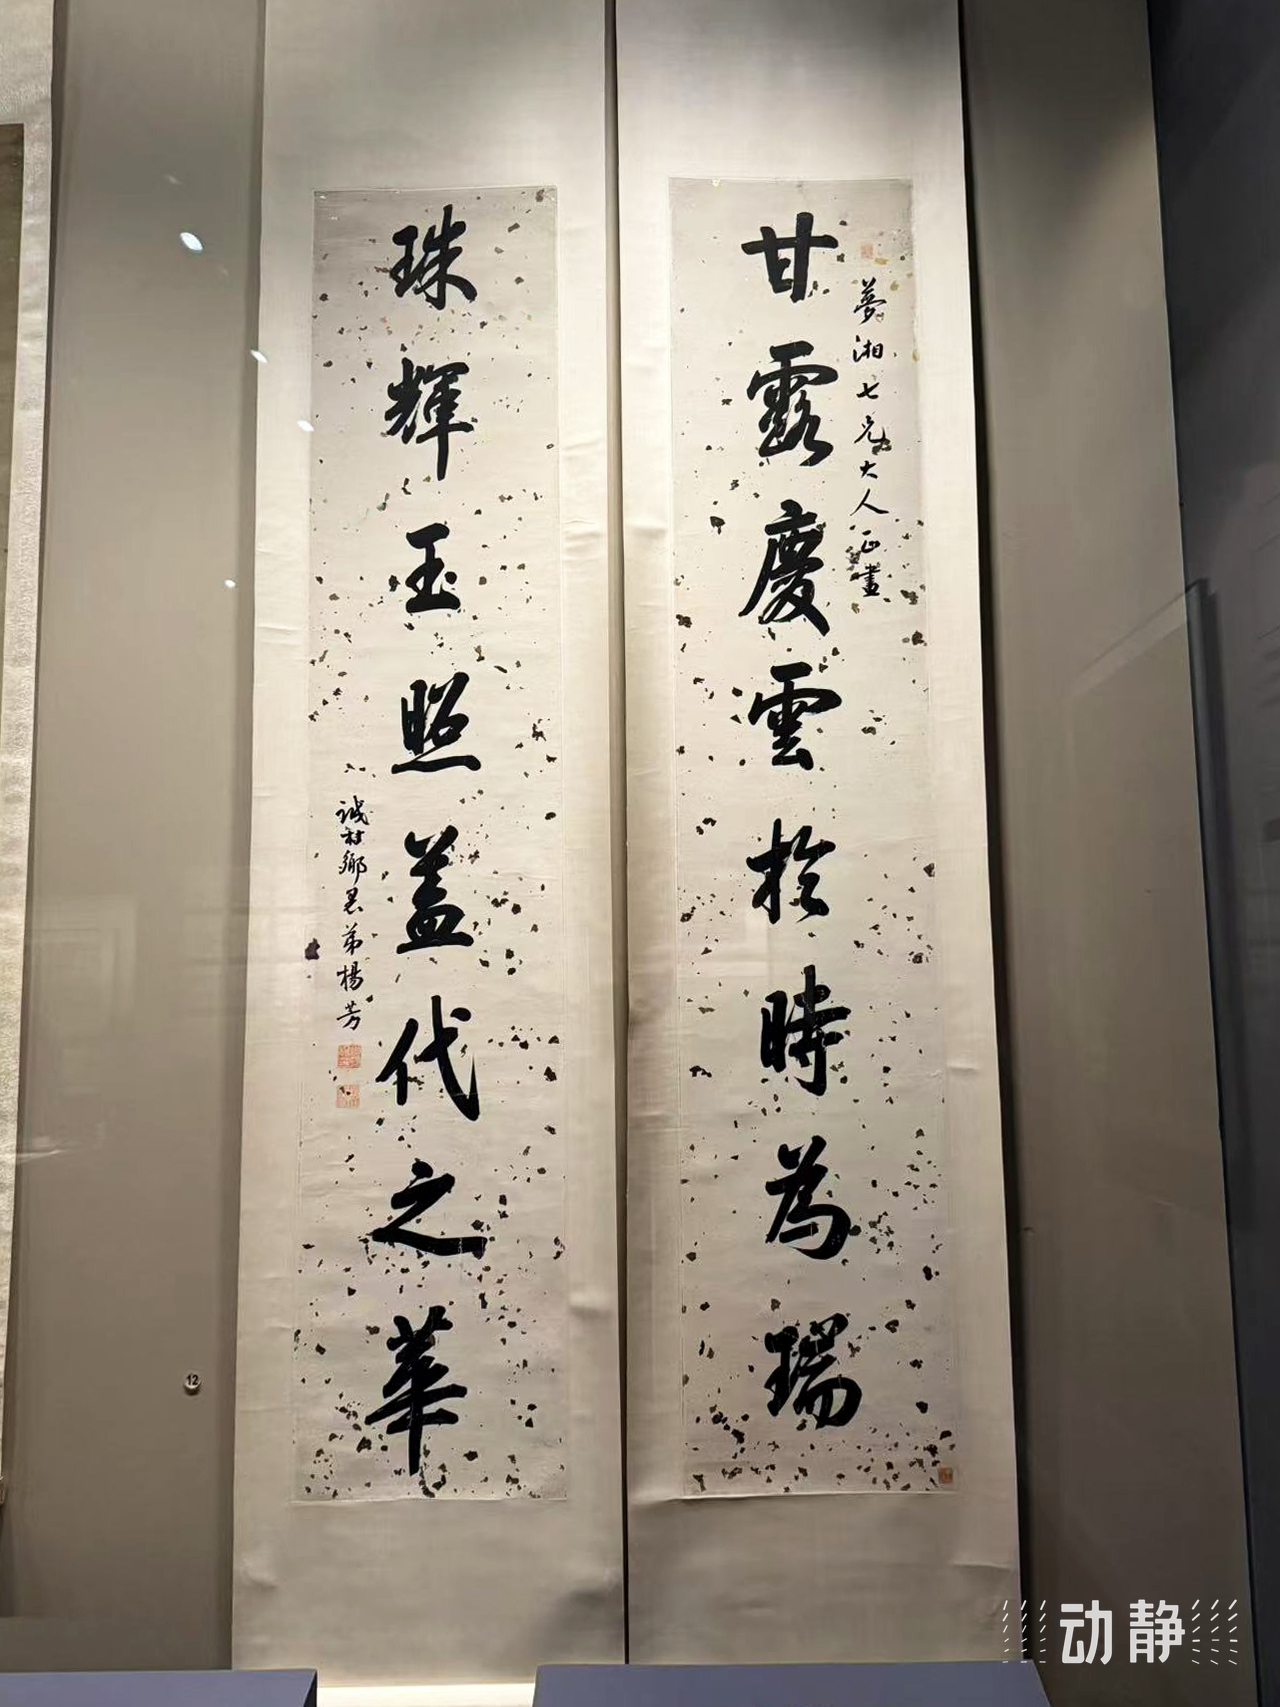 夢湘七兄大人正書
甘露慶雲於時為瑞
珠輝玉照蓋代之華
誠村鄉愚弟楊芳
12
动静